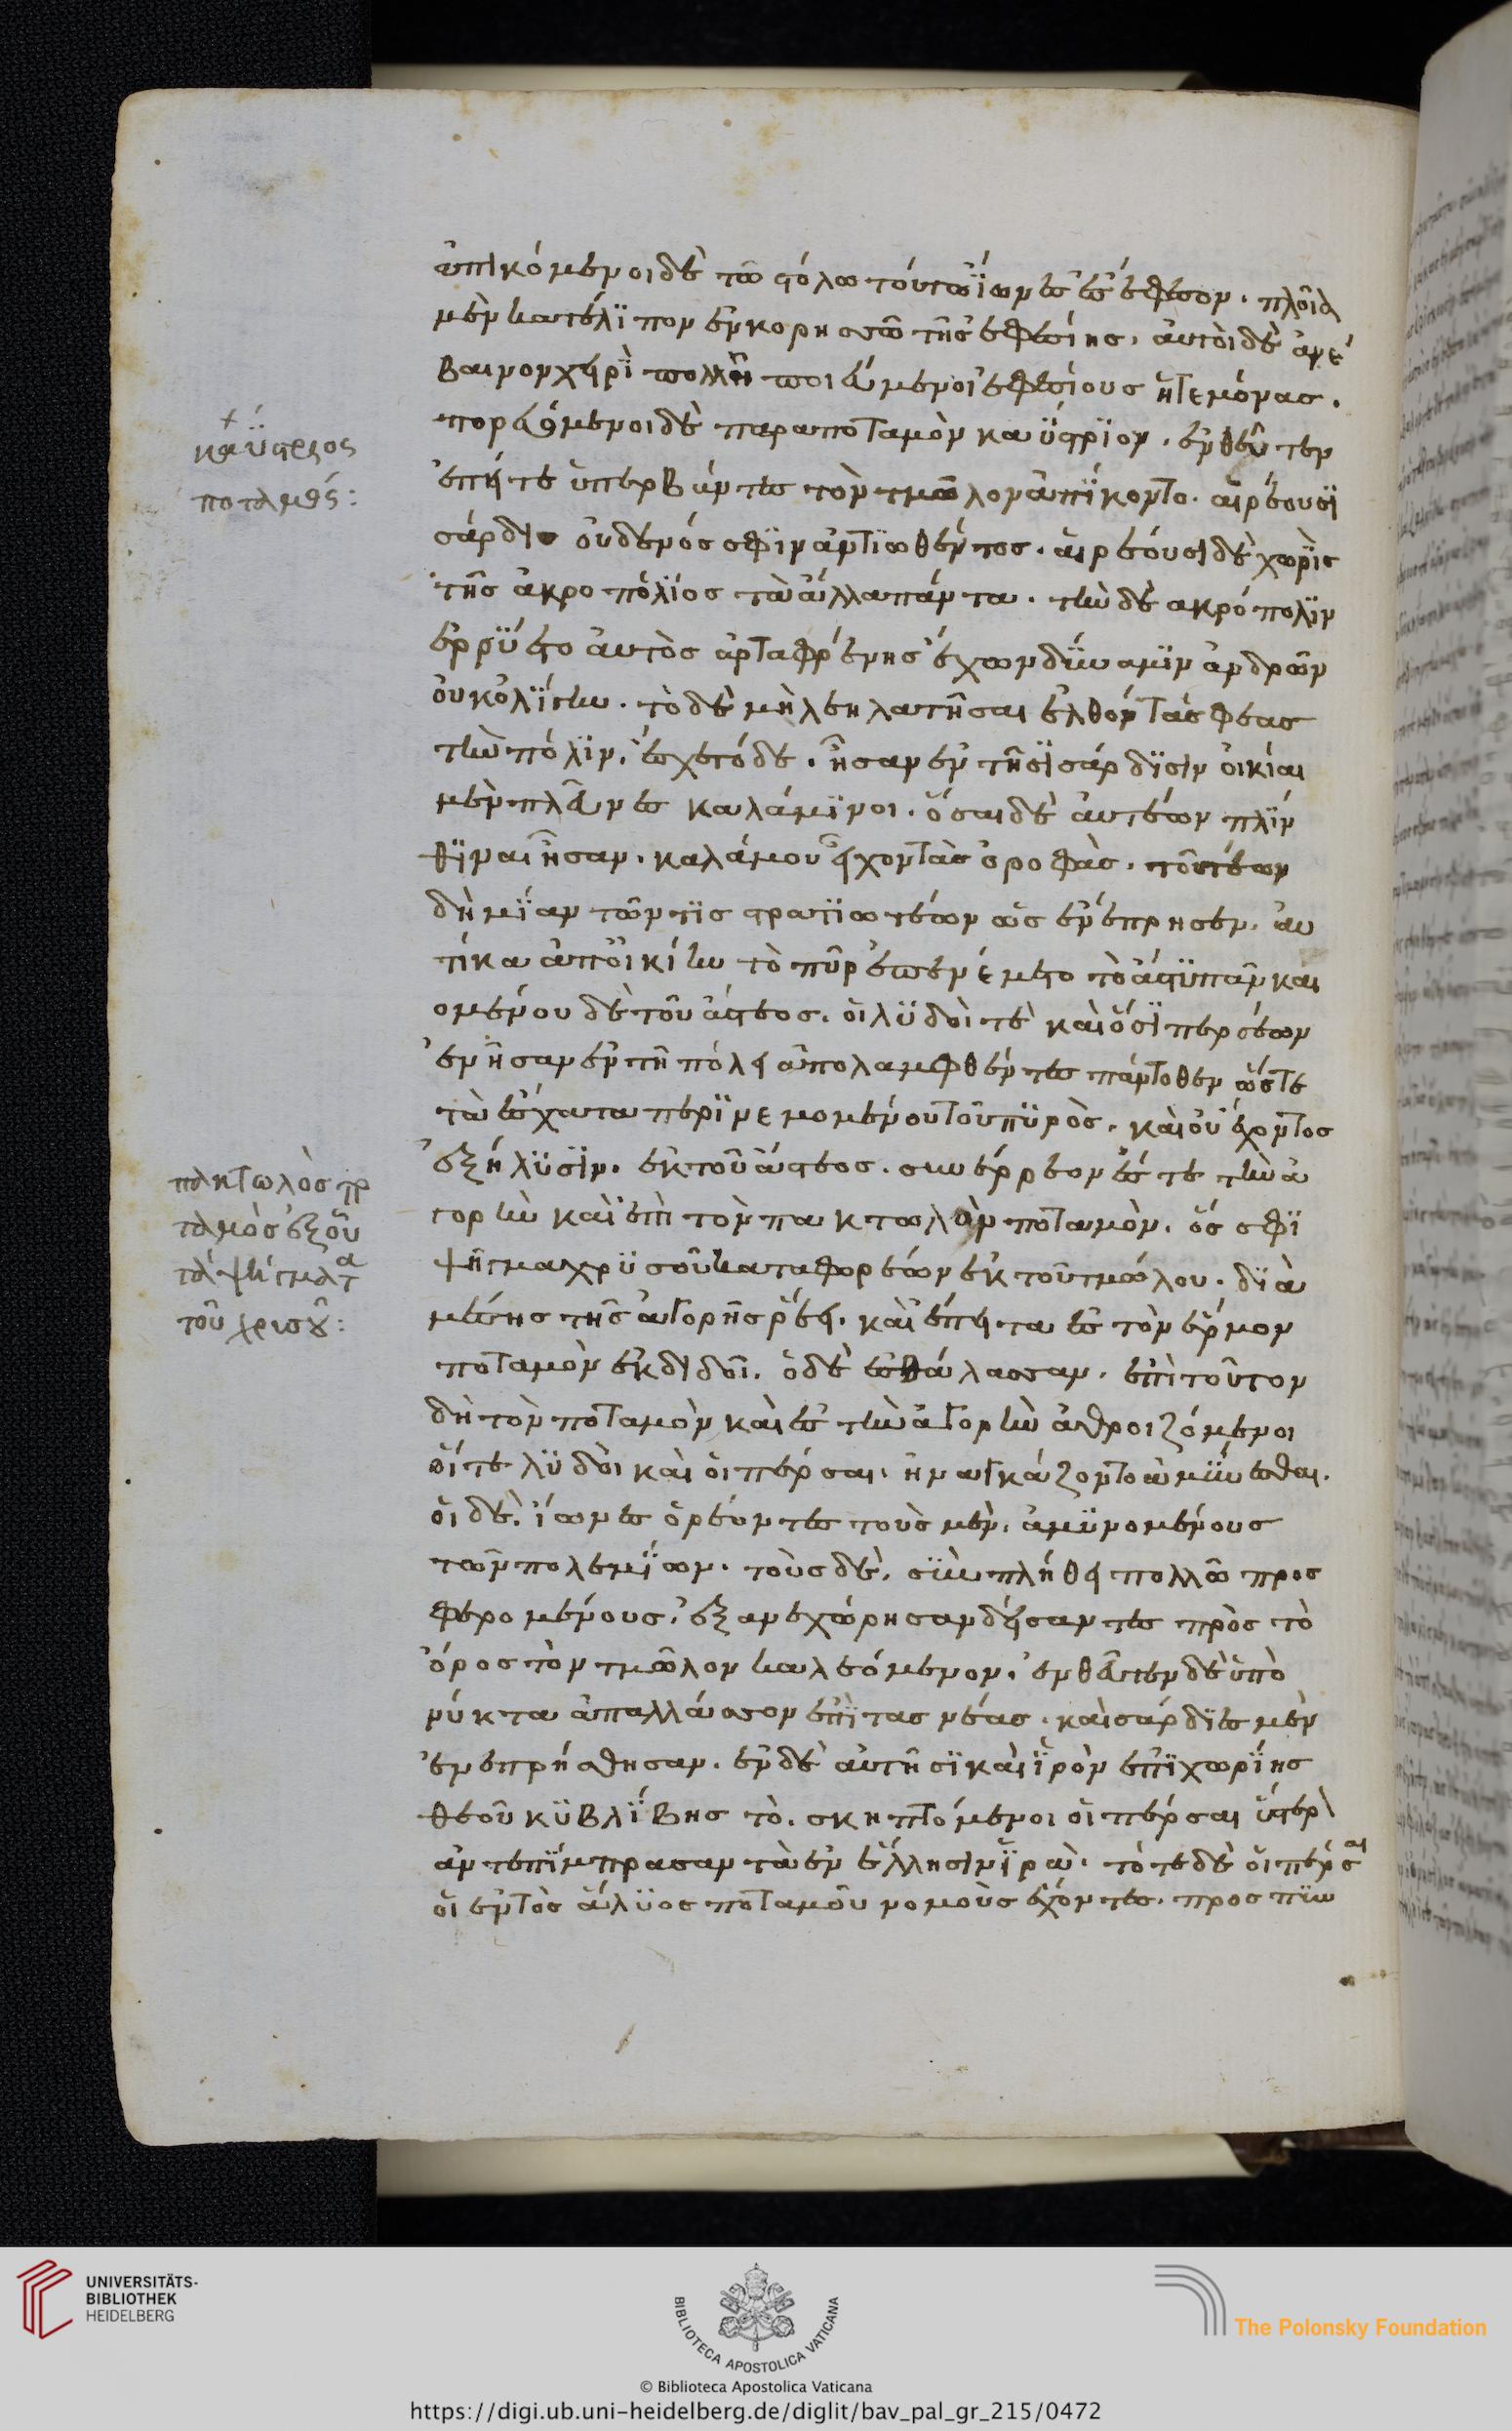 ἀπικόμενοι δὲ τῶ στόλω τούτω ἴωνες ἐς ἔφεσον. πλοῖα
μὲν κατέλιπον ἐν κορησσῶ τῆς ἐφεσίης. ἀυτοὶ δὲ ἀνέ
βαινον χειρὶ πολλῆ ποιεύμενοι ἐφεσίους ἡγεμόνας.
πορευόμενοι δὲ παρα ποταμὸν καΰστριον. ἐνθεῦτεν
ἐπείτε ὑπερβάντες τὸν τμῶλον ἀπίκοντο. αἱρέουσι
σάρδις οὐδενός σφιν ἀντιωθέντος. αἱρέουσι δὲ χωρὶς
τῆς ἀκροπόλιος τὰ ἄλλα πάντα. τὴν δὲ ακρόπολιν
ἐρρύετο ἀυτὸς ἀρταφρένης ἔχων δύναμιν ἀνδρῶν
οὐκ ὀλίγην. τὸ δὲ μὴ λεηλατῆσαι ἐλθόντάς φεας
τὴν πόλιν. ἔσχε τόδε. ἦσαν ἐν τῆσι σάρδισιν οἰκίαι
μὲν πλεῦνες καλάμινοι. ὅσαι δὲ ἀυτέων πλίν
θιναι ἦσαν. καλάμου εἶχον τὰς ὀροφὰς. τουτέων
δὴ μίαν τῶν τις στρατιωτέων ὡς ἐνέπρησεν. ἀυ
τίκα ἀπ οἰκίην τὸ πῦρ ἐπενέμετο τὸ ἄστυ πᾶν και
ομένου δὲ τοῦ ἄστεος. οἱ λυδοὶ τὲ καὶ ὅσι περσέων
ἐνῆσαν ἐν τῆ πόλει ἀπολαμφθέντες πάντοθεν ὥστε
τὰ ἔσχατα περινεμομένου τοῦ πυρὸς. καὶ οὐ ἔχοντος
ἐξήλυσιν. ἐκ τοῦ ἄστεος. συνέρρεον ἔς τε τὴν ἀ
γορὴν καὶ ἐπὶ τὸν πακτωλὸν ποταμὸν. ὅς σφι
ψῆγμα χρυσοῦ καταφορέων ἐκ τοῦ τμώλου. διὰ
μέσης τῆς ἀγορῆς ῥέει. καὶ ἔπειτα ἐς τὸν ἕρμον
ποταμὸν ἐκδιδοῖ. ὁ δὲ ἐς θάλασσαν. ἐπὶ τοῦτον
δὴ τὸν ποταμὸν καὶ ἐς τὴν ἀγορὴν ἀθροιζόμενοι
οἵτε λυδοὶ καὶ οἱ πέρσαι. ἠναγκάζοντο ἀμύνεσθαι.
οἱ δὲ. ἴωνες ὁρέοντες τοὺς μὲν. ἀμυνομένους
τῶν πολεμίων. τοὺς δὲ. σὺν πλήθει πολλῶ προς
φερομένους. ἐξανεχώρησαν δείσαντες πρὸς τὸ
ὄρος τὸν τμῶλον καλεόμενον. ἐνθεῦτεν δὲ ὑπὸ
νύκτα ἀπαλλάσσον ἐπὶ τας νέας. καὶ σάρδιες μὲν
ἐνεπρήσθησαν. ἐν δὲ ἀυτῆσι καὶ ἱρὸν ἐπιχωρίης
θεοῦ κυβλίβης τὸ. σκηπτόμενοι οἱ πέρσαι ὕστερ
ἀντεπίμπρασαν τὰ ἐν ἕλλησιν ἱρὰ. τότε δὲ οἱ πέρσαι
οἱ ἐντὸς ἅλυος ποταμοῦ νομοὺς ἔχοντες. προς πυν
καΰστριος
ποταμός:
πακτωλὸς πο
ταμὸς ἐξ οὗ
τὰ ψήγματα
τοῦ χρισοῦ:
UNIVERSITÄTS-
BIBLIOTHEK
HEIDELBERG
BIBLIOTECA APOSTOLICA VATICANA
The Polonsky Foundation
© Biblioteca Apostolica Vaticana
https://digi.ub.uni-heidelberg.de/diglit/bav_pal_gr_215/0472